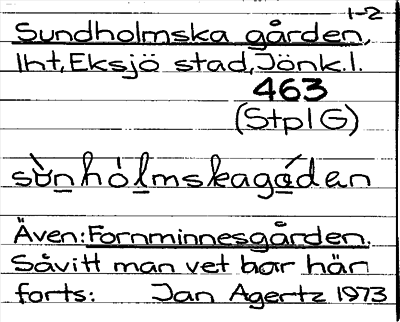 1-2
Sundholmska gården,
lht, Eksjö stad, Jönk.l.
463
(Stpl G)
sùnhólmskagådan
Även: Fornminnesgården.
Såvitt man vet bar här
forts: Jan Agertz 1973